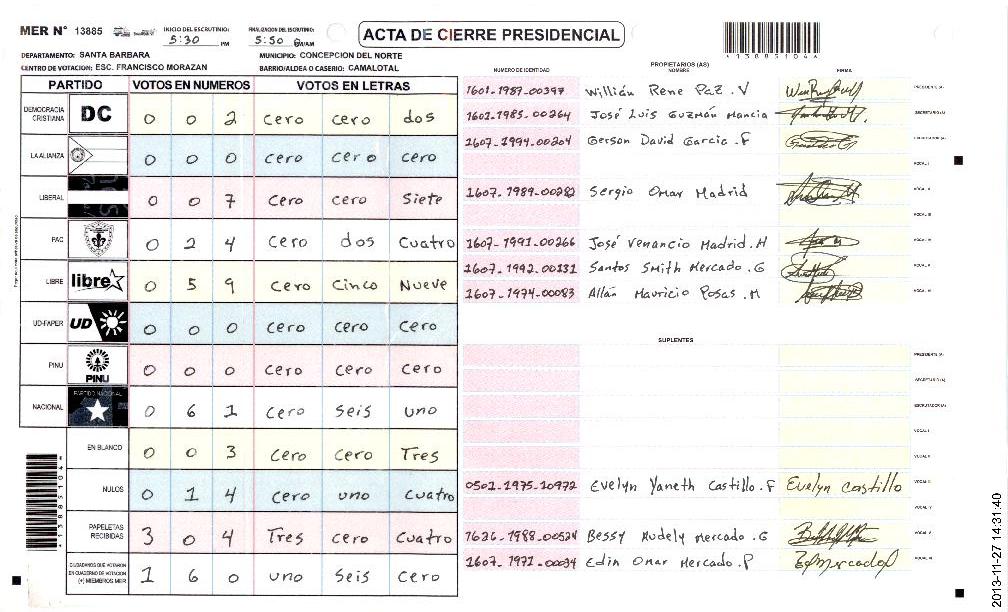 MER N° 13885
INICIO DEL ESCRUTINIO: 5:30 PM
FINALIZACION DEL ESCRUTINIO: 5:50
ACTA DE CIERRE PRESIDENCIAL
DEPARTAMENTO: SANTA BARBARA
MUNICIPIO: CONCEPCION DEL NORTE
CENTRO DE VOTACION: ESC. FRANCISCO MORAZAN
BARRIO/ALDEA O CASERIO: CAMALOTAL
PARTIDO VOTOS EN NUMEROS VOTOS EN LETRAS
DEMOCRACIA CRISTIANA DC 0 0 2 cero cero dos
LA ALIANZA 0 0 0 cero cero cero
LIBERAL 0 0 7 cero cero Siete
PAC 0 2 4 cero dos cuatro
LIBRE libre 0 5 9 cero cinco Nueve
UD-FAPER UD 0 0 0 cero cero cero
PINU PINU 0 0 0 cero cero cero
NACIONAL PARTIDO NACIONAL 0 6 1 cero seis uno
EN BLANCO 0 0 3 cero cero Tres
NULOS 0 1 4 cero uno cuatro
PAPELETAS RECIBIDAS 3 0 4 Tres cero cuatro
CIUDADANOS QUE VOTARON EN CUADERNO DE VOTACION (+) MIEMBROS MER 1 6 0 uno seis cero
*13885104*
PROPIETARIOS (AS)
NUMERO DE IDENTIDAD NOMBRE FIRMA
1601-1987-00397 Willián Rene Paz .V PRESIDENTE (A)
1601-1985-00264 José Luis Guzmán Mancia SECRETARIO (A)
1607-1994-00204 Gerson David Garcia .F ESCRUTADOR (A)
VOCAL I
1607-1989-00282 Sergio Omar Madrid VOCAL II
VOCAL III
1607-1991-00266 José Venancio Madrid .M VOCAL IV
1607-1992-00131 Santos Smith Mercado .G VOCAL V
1607-1974-00083 Allán Mauricio Posas .M VOCAL VI
SUPLENTES
PRESIDENTE (A)
SECRETARIO (A)
ESCRUTADOR (A)
VOCAL I
VOCAL II
0501-1975-10972 Evelyn Yaneth Castillo .F Evelyn Castillo VOCAL III
VOCAL IV
1626-1988-00524 Bessy Nudely Mercado .G VOCAL V
1607-1971-00034 Edin Omar Mercado .P VOCAL VI
*13885104*
2013-11-27 14:31:40